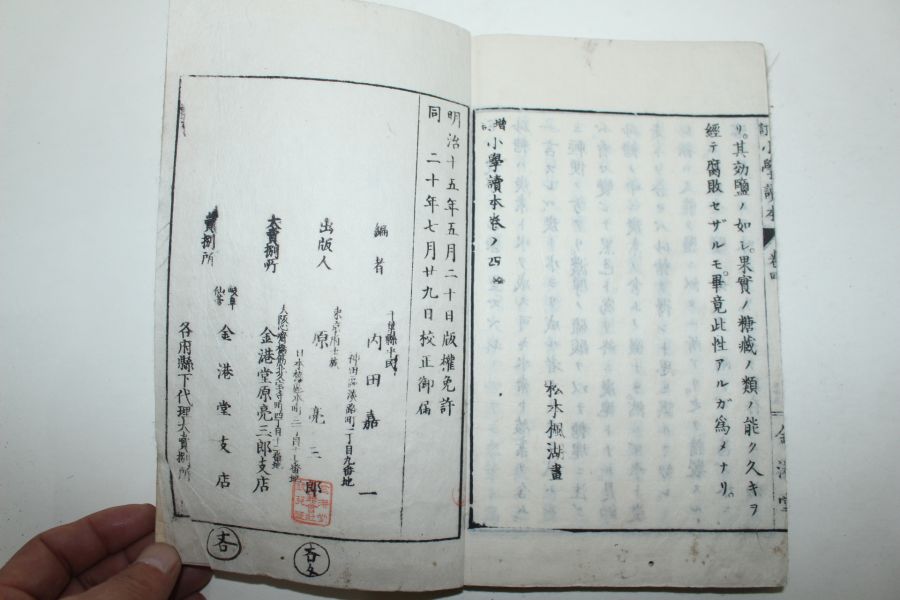 訂小學讀本 卷四
金港堂
リ。其効鹽ノ如シ。果實ノ糖藏ノ類ノ能ク久キヲ
經テ腐敗セザルモ。畢竟此性アルガ爲メナリ。
松本楓湖畫
小學讀本卷ノ四
明治十五年五月二十日版權免許
同 二十年七月廿九日校正御届
編者
千葉縣平民
内田嘉一
神田區
町二丁目九番地
出版人
東京府士族
原亮三郎
日本橋區本町三丁目
番地
大賣捌所
大阪
四丁目
番地
金港堂原亮三郎支店
賣捌所
岐阜
仙臺
金港堂支店
各府縣下代理大賣捌所